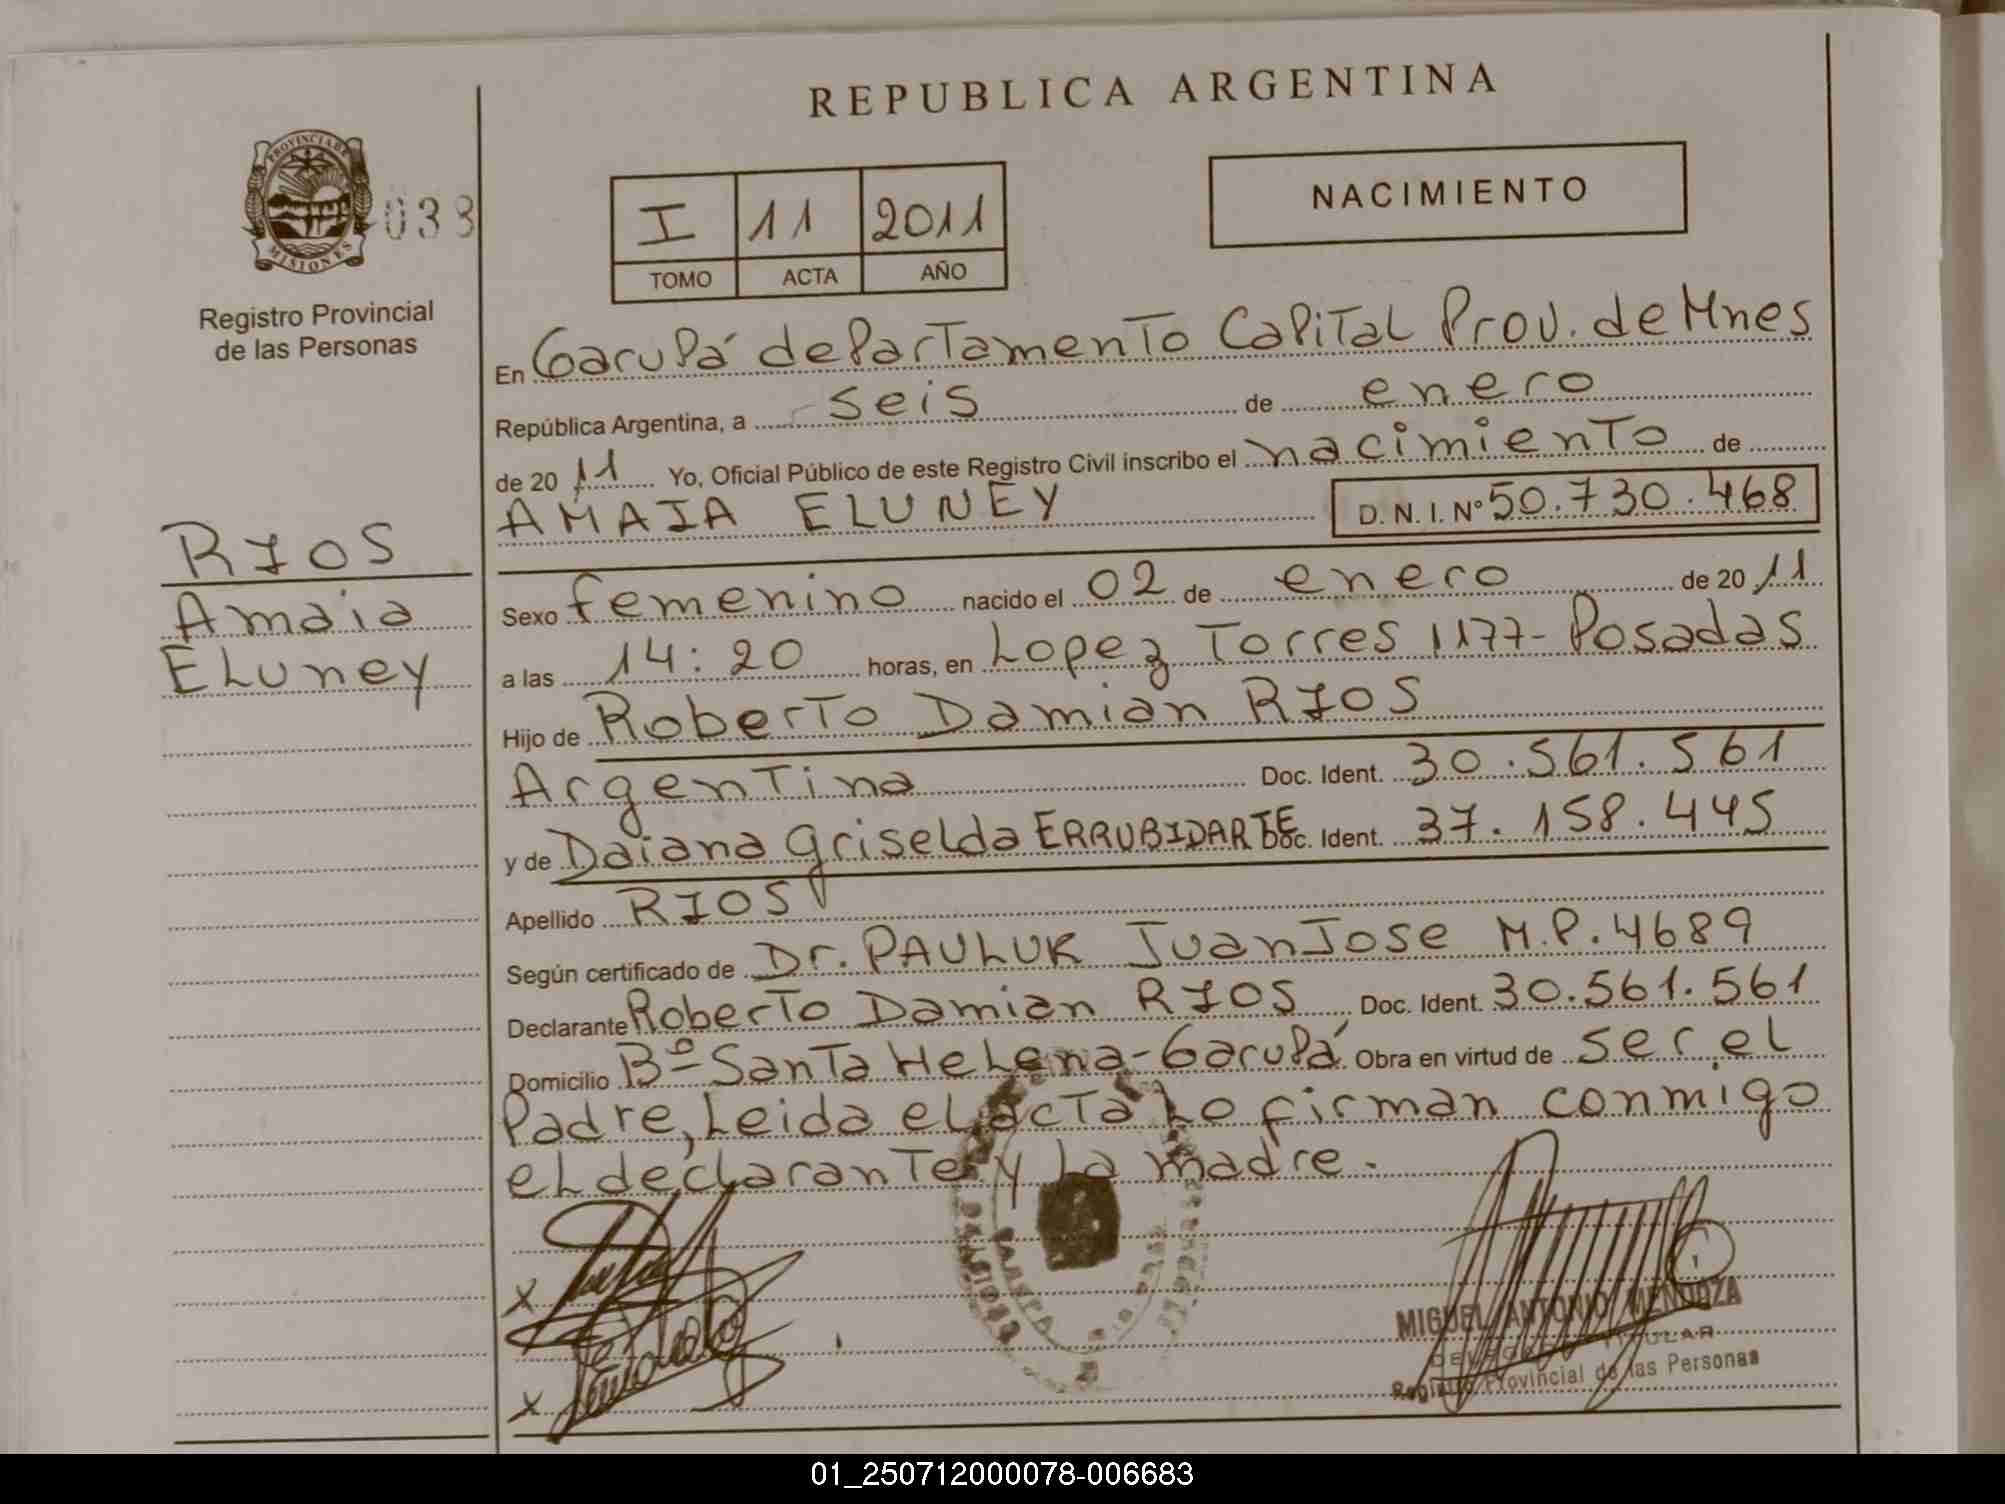 REPUBLICA ARGENTINA
PROVINCIA DE
MISIONES
038
Registro Provincial
de las Personas
I 11 2011
TOMO ACTA AÑO
NACIMIENTO
En Garupá departamento Capital Prov. de Mnes
República Argentina, a seis de enero
de 2011 Yo, Oficial Público de este Registro Civil inscribo el nacimiento de
AMAIA ELUNEY D. N. I. Nº 50.730.468
RIOS
Amaia
Eluney
Sexo femenino nacido el 02 de enero de 2011
a las 14:20 horas, en Lopez Torres 1177-Posadas
Hijo de Roberto Damian RIOS
Argentina Doc. Ident. 30.561.561
y de Daiana Griselda ERRUBIDARTE Doc. Ident. 37.158.445
Apellido RIOS
Según certificado de Dr. PAULUK Juan Jose M.P. 4689
Declarante Roberto Damian RIOS Doc. Ident. 30.561.561
Domicilio Bº Santa Helena-Garupá Obra en virtud de ser el
Padre, Leida el acta lo firman conmigo
el declarante y la madre.
MIGUEL ANTONIO MENDOZA
DELEGADO TITULAR
Registro Provincial de las Personas
01_250712000078-006683